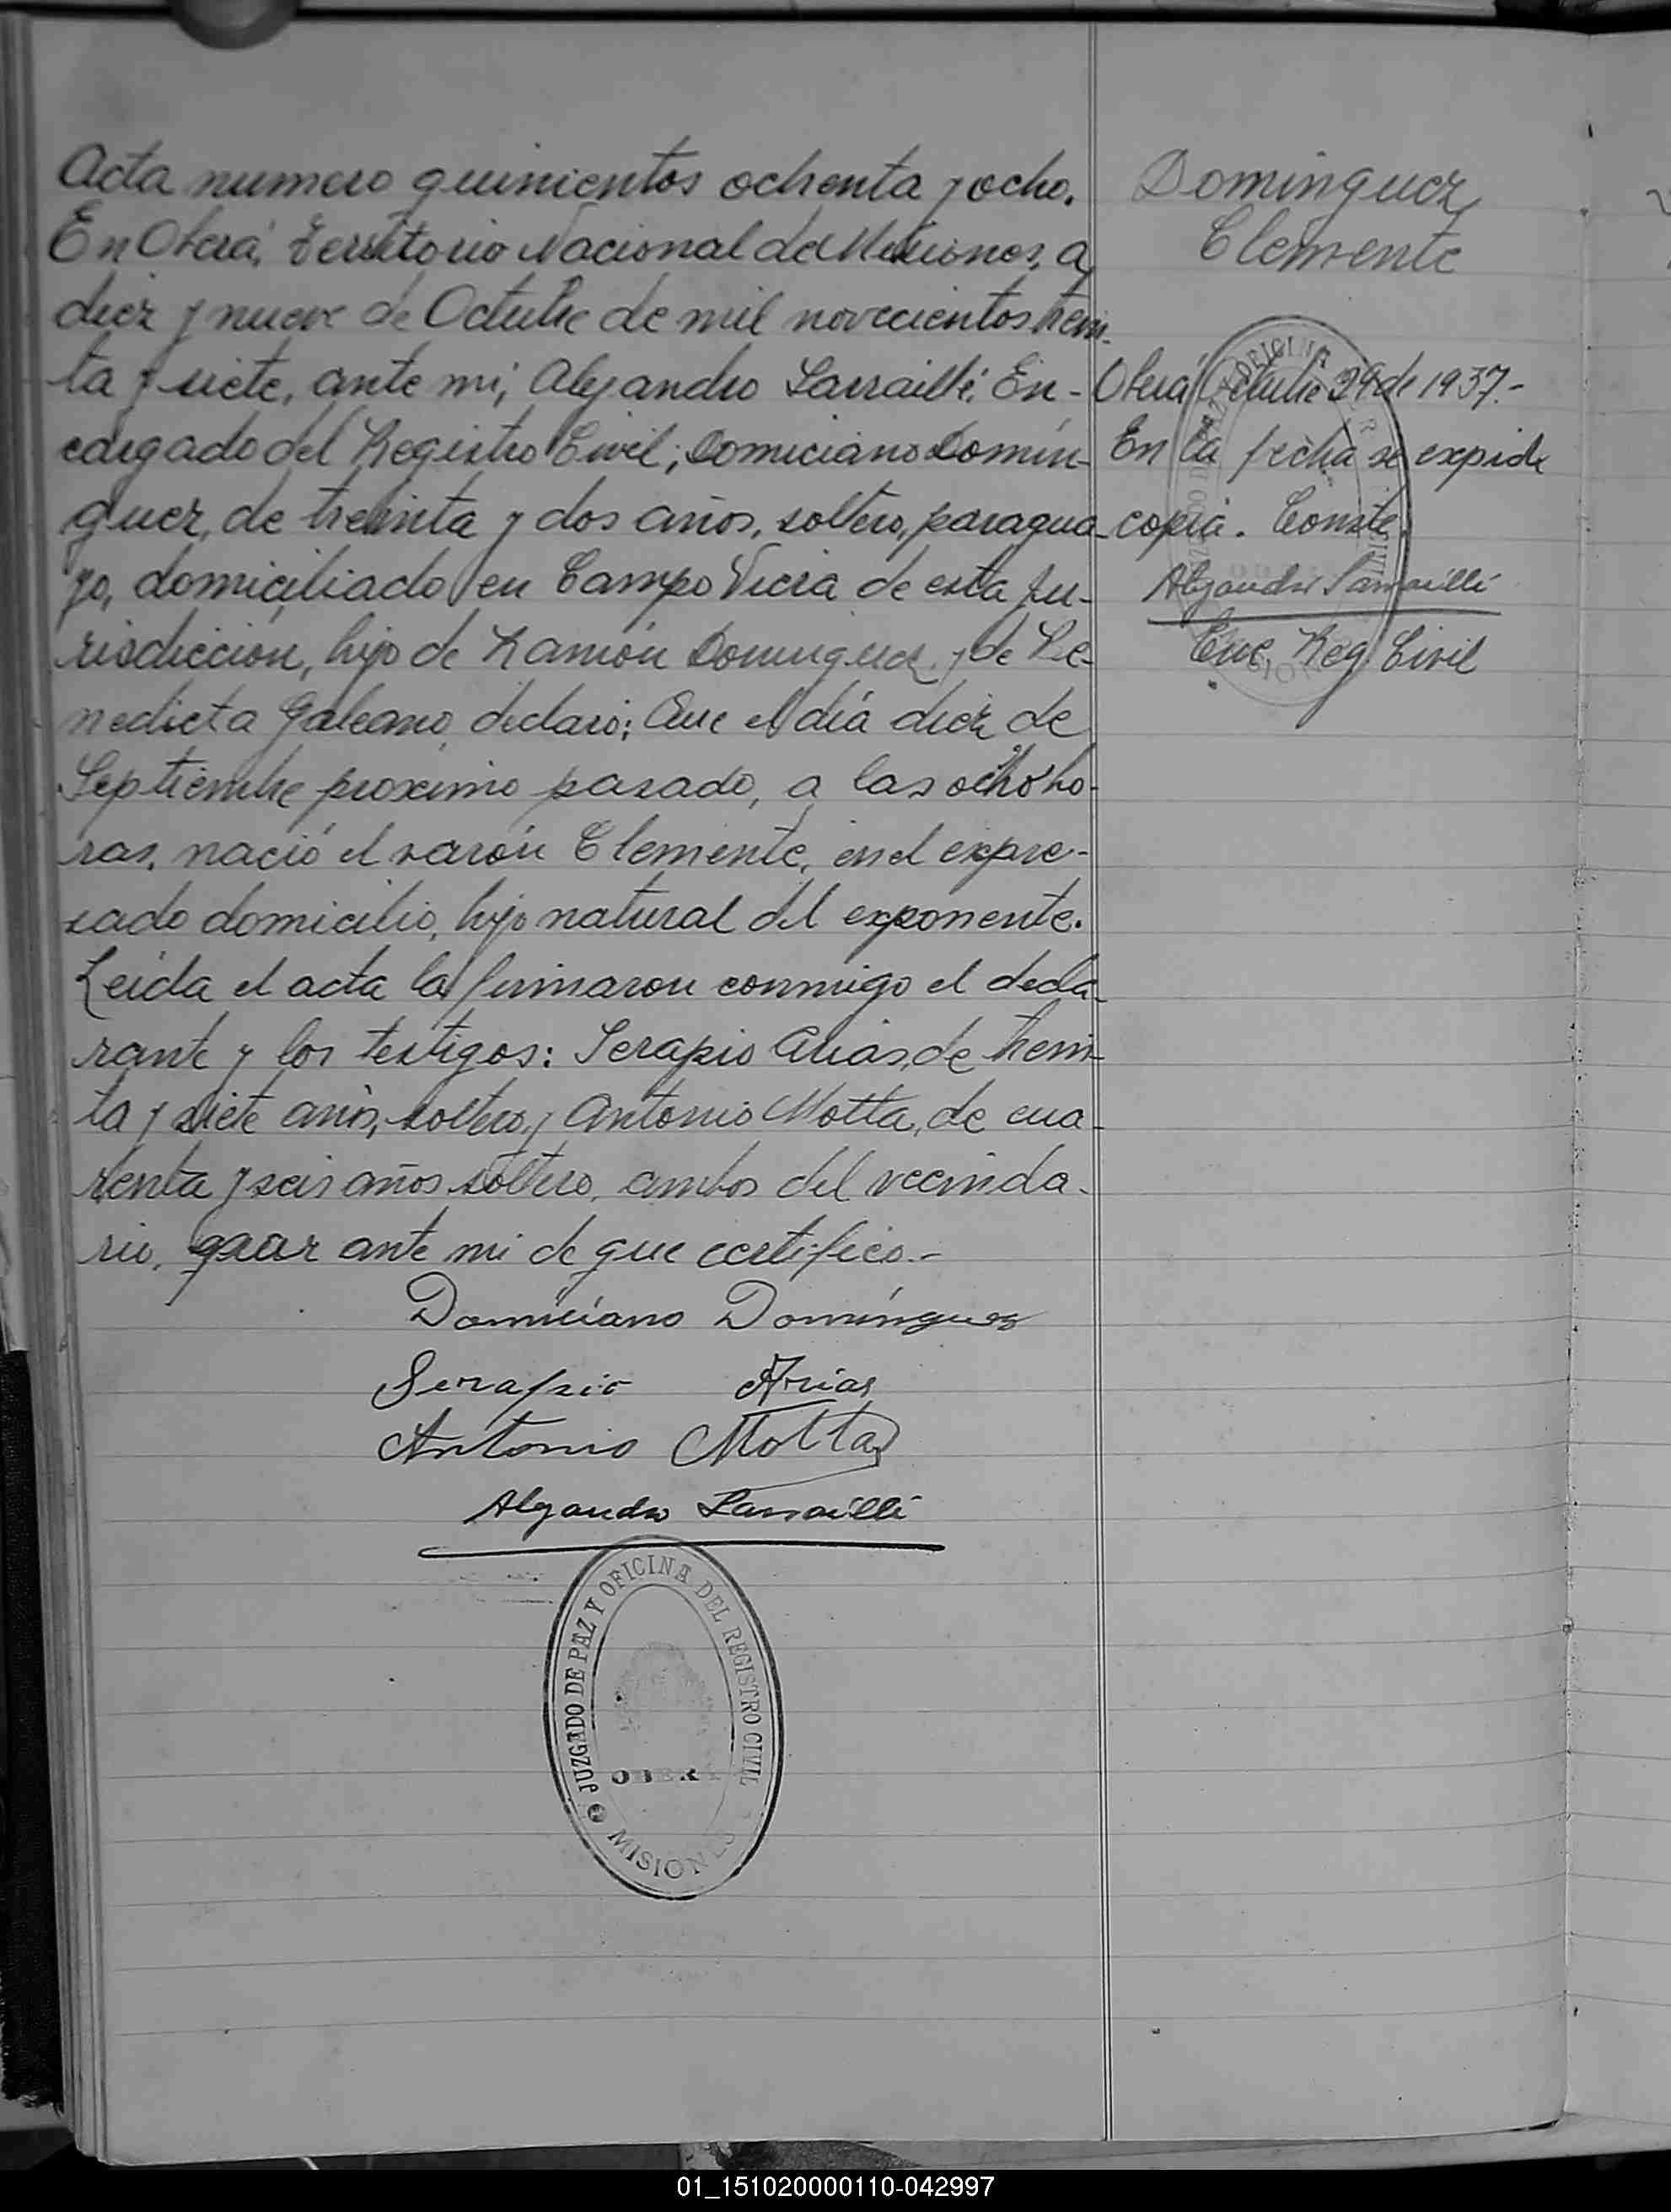 Acta numero quinientos ochenta y ocho.
En Oberá, Territorio Nacional de Misiones, a
diez y nueve de Octubre de mil novecientos trein-
ta y siete, ante mi, Alejandro Larraillé, En-
cargado del Registro Civil; Domiciano Domín-
guez, de treinta y dos años, soltero, paragua-
yo, domiciliado en Campo Viera de esta ju-
risdiccion, hijo de Ramón Dominguez y de Be-
nedicta Galeano, declaró: Que el día diez de
Septiembre proximo pasado, a las ocho ho-
ras, nació el varón Clemente, en el expre-
sado domicilio, hijo natural del exponente.
Leida el acta la firmaron conmigo el decla-
rante y los testigos: Serapio Arias, de trein-
ta y siete años, soltero, y Antonio Motta, de cua-
renta y seis años soltero, ambos del vecinda-
rio, ante mi de que certifico.-
Domiciano Domínguez
Serapio Arias
Antonio Motta
Alejandro Larraillé
JUZGADO DE PAZ Y OFICINA DEL REGISTRO CIVIL
OBERÁ
MISIONES
Dominguez
Clemente
Oberá Octubre 29 de 1937.-
En la fecha se expide
copia. Conste.
Alejandro Larraillé
Enc. Reg. Civil
01_151020000110-042997